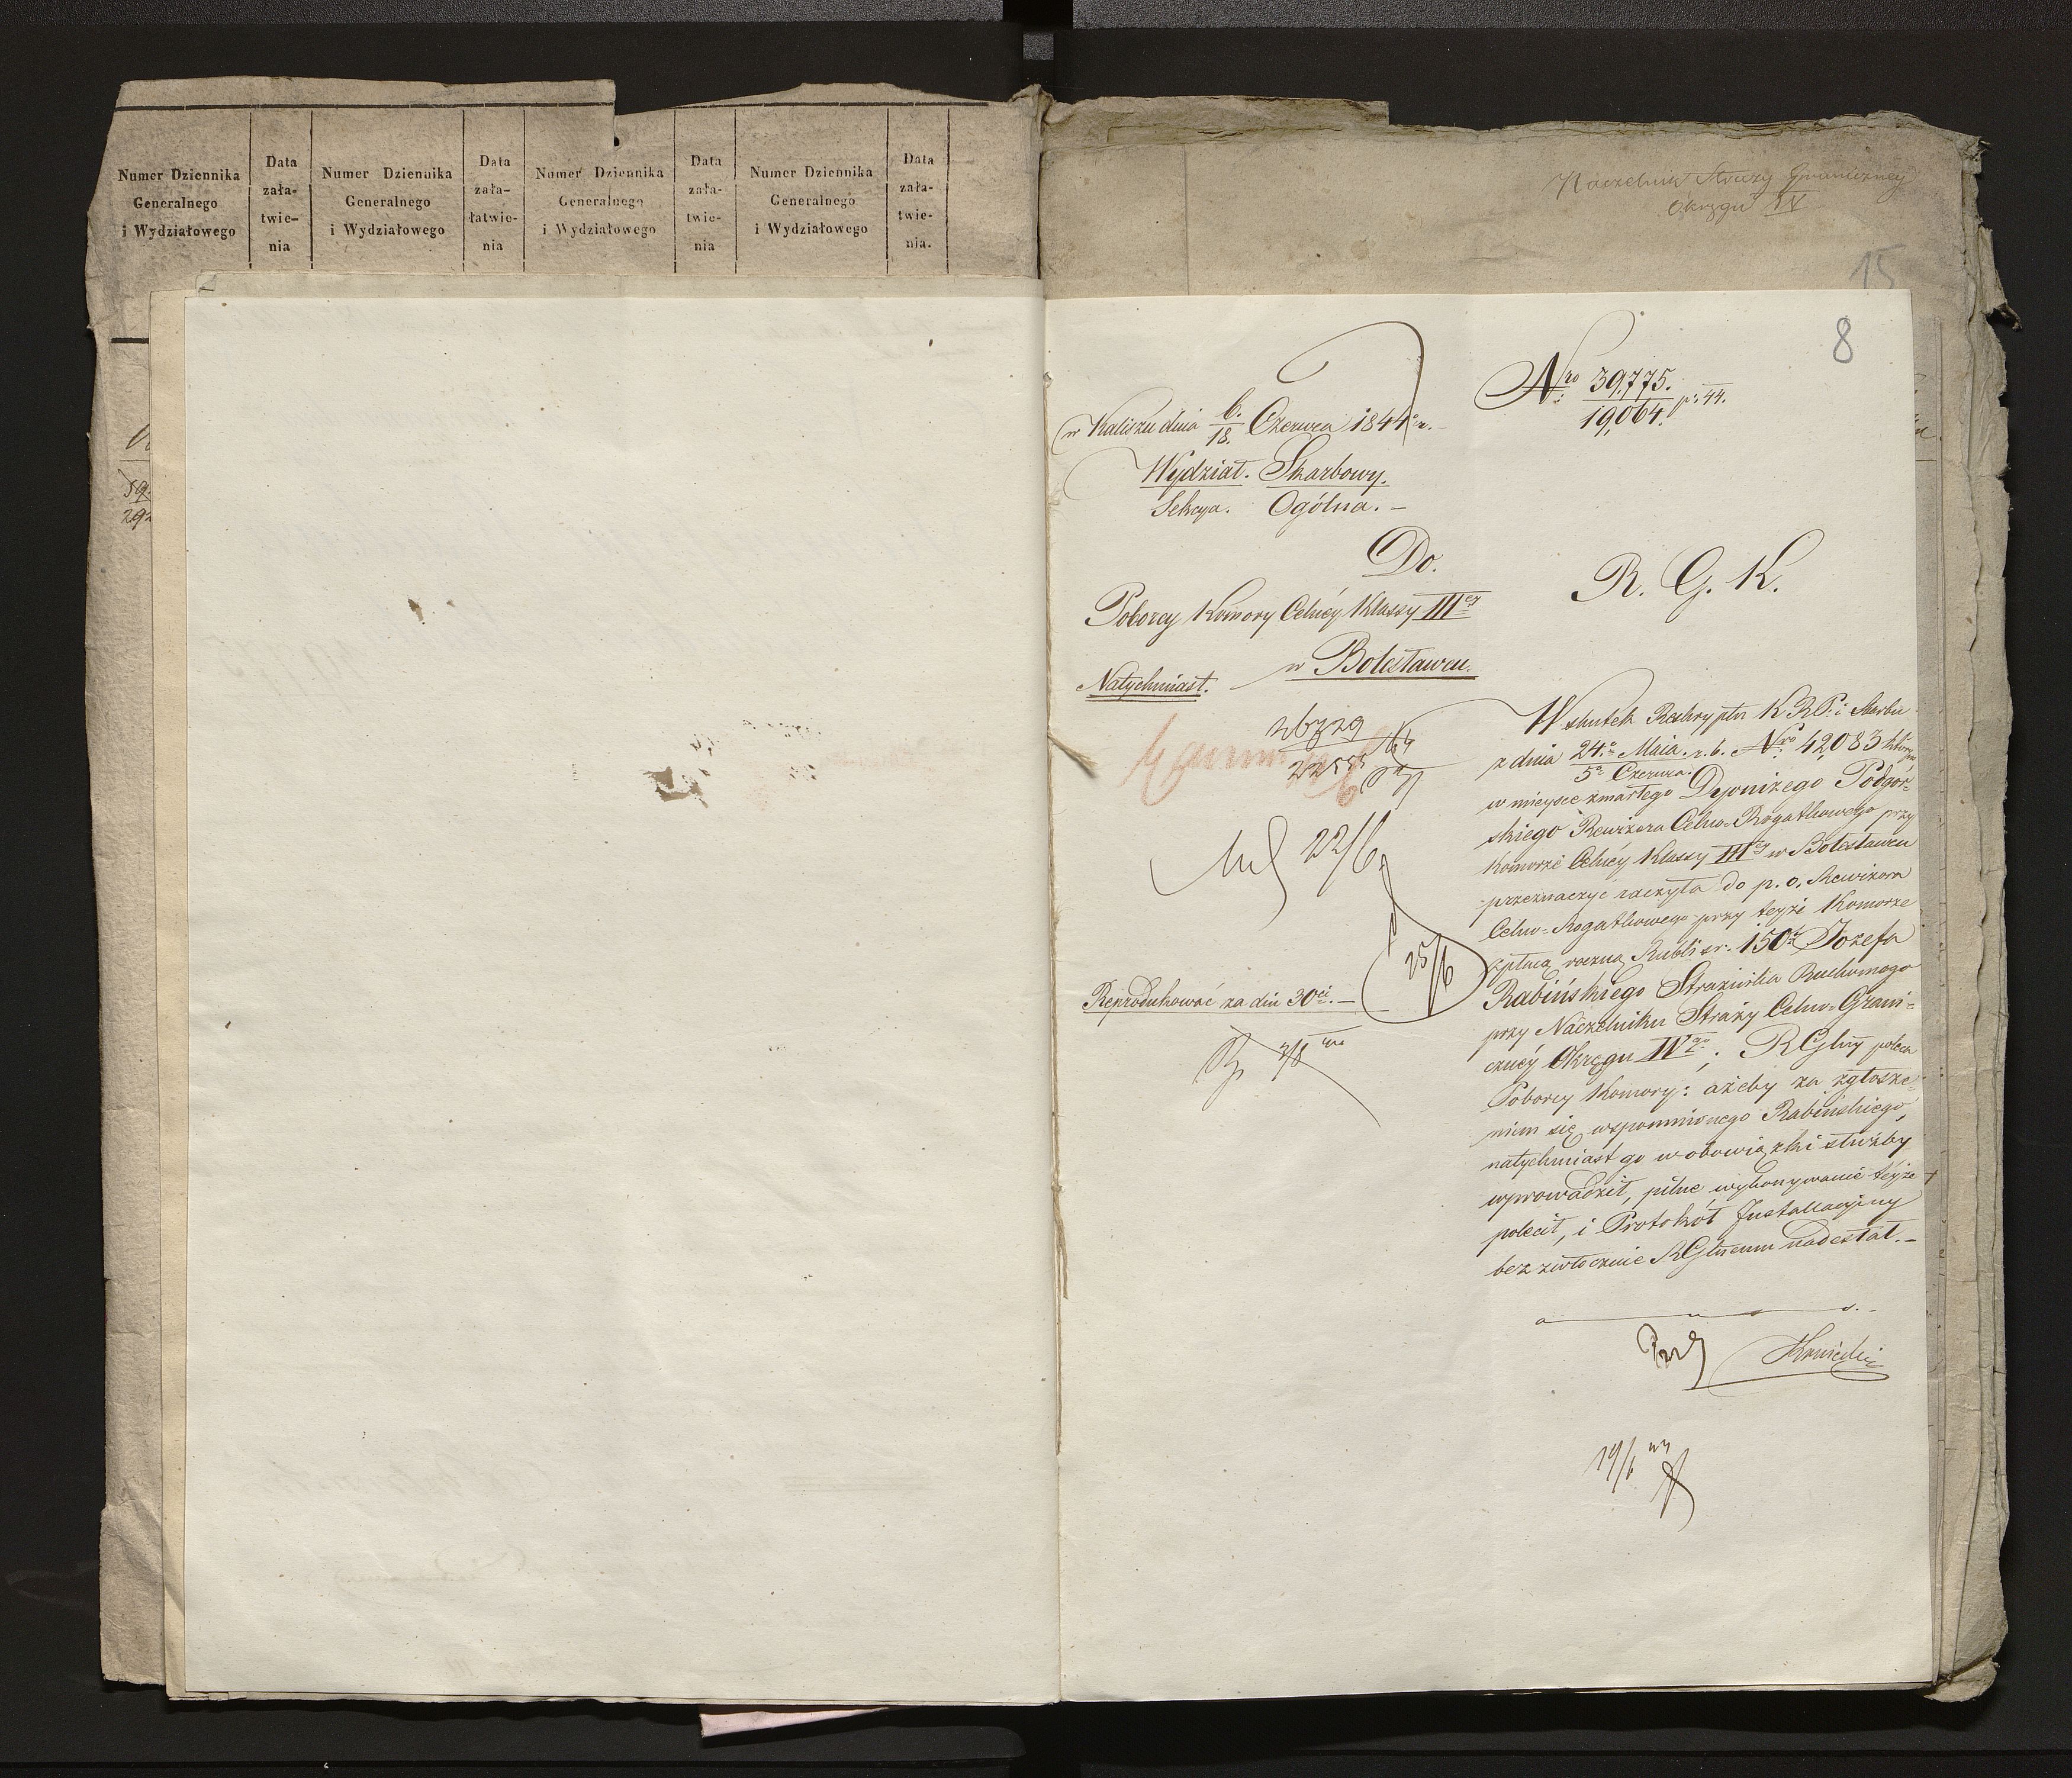 Numer Dziennika
Generalnego
i Wydziałowego
Data
zała-
twie-
nia
Numer Dziennika
Generalnego
i Wydziałowego
Data
zała-
łatwie-
nia
Numer Dziennika
Generalnego
i Wydziałowego
Data
zała-
twie-
nia
Numer Dziennika
Generalnego
i Wydziałowego
Data
zała-
twie-
nia.
Naczelnik Straży Graniczney
Okręgu IV
15
8
w Kaliszu dnia 6./18. Czerwca 1844 r.
Wydział. Skarbowy.
Sekcya. Ogólna. –
Do.
Poborcy Komory Celnéy Klassy III éy
w Bolesławcu.
Natychmiast.
26729
22/6
25/6
Reprodukować za dni 30ci. –
Nro 39,775./19,064. p. 44.
R. G. K.
W skutek Reskryptu K R P. i Skarbu
z dnia 24. Maia./5 Czerwca. r. b. Nro 42,083 którym
w mieysce zmarłego Dyonizego Podgór-
skiego Rewizora Celno-Rogatkowego przy
Komorze Celnéy Klassy III éy w Bolesławcu
przeznaczyć raczyła do p. o. Rewizora
Celno-Rogatkowego przy teyże Komorze
z płacą roczną Rubli sr. 150 Józefa
Rabińskiego Strażnika Ruchomego
przy Naczelniku Straży Celno-Grani-
cznéy Okręgu IV go; RGlny poleca
Poborcy Komory: ażeby za zgłosze-
niem się wspomnionego Rabińskiego,
natychmiast go w obowiązki służby
wprowadził, pilne wykonywanie téyże
polecił, i Protokół Installacyiny
bezzwłocznie RGlnemu nadesłał. –
19/6